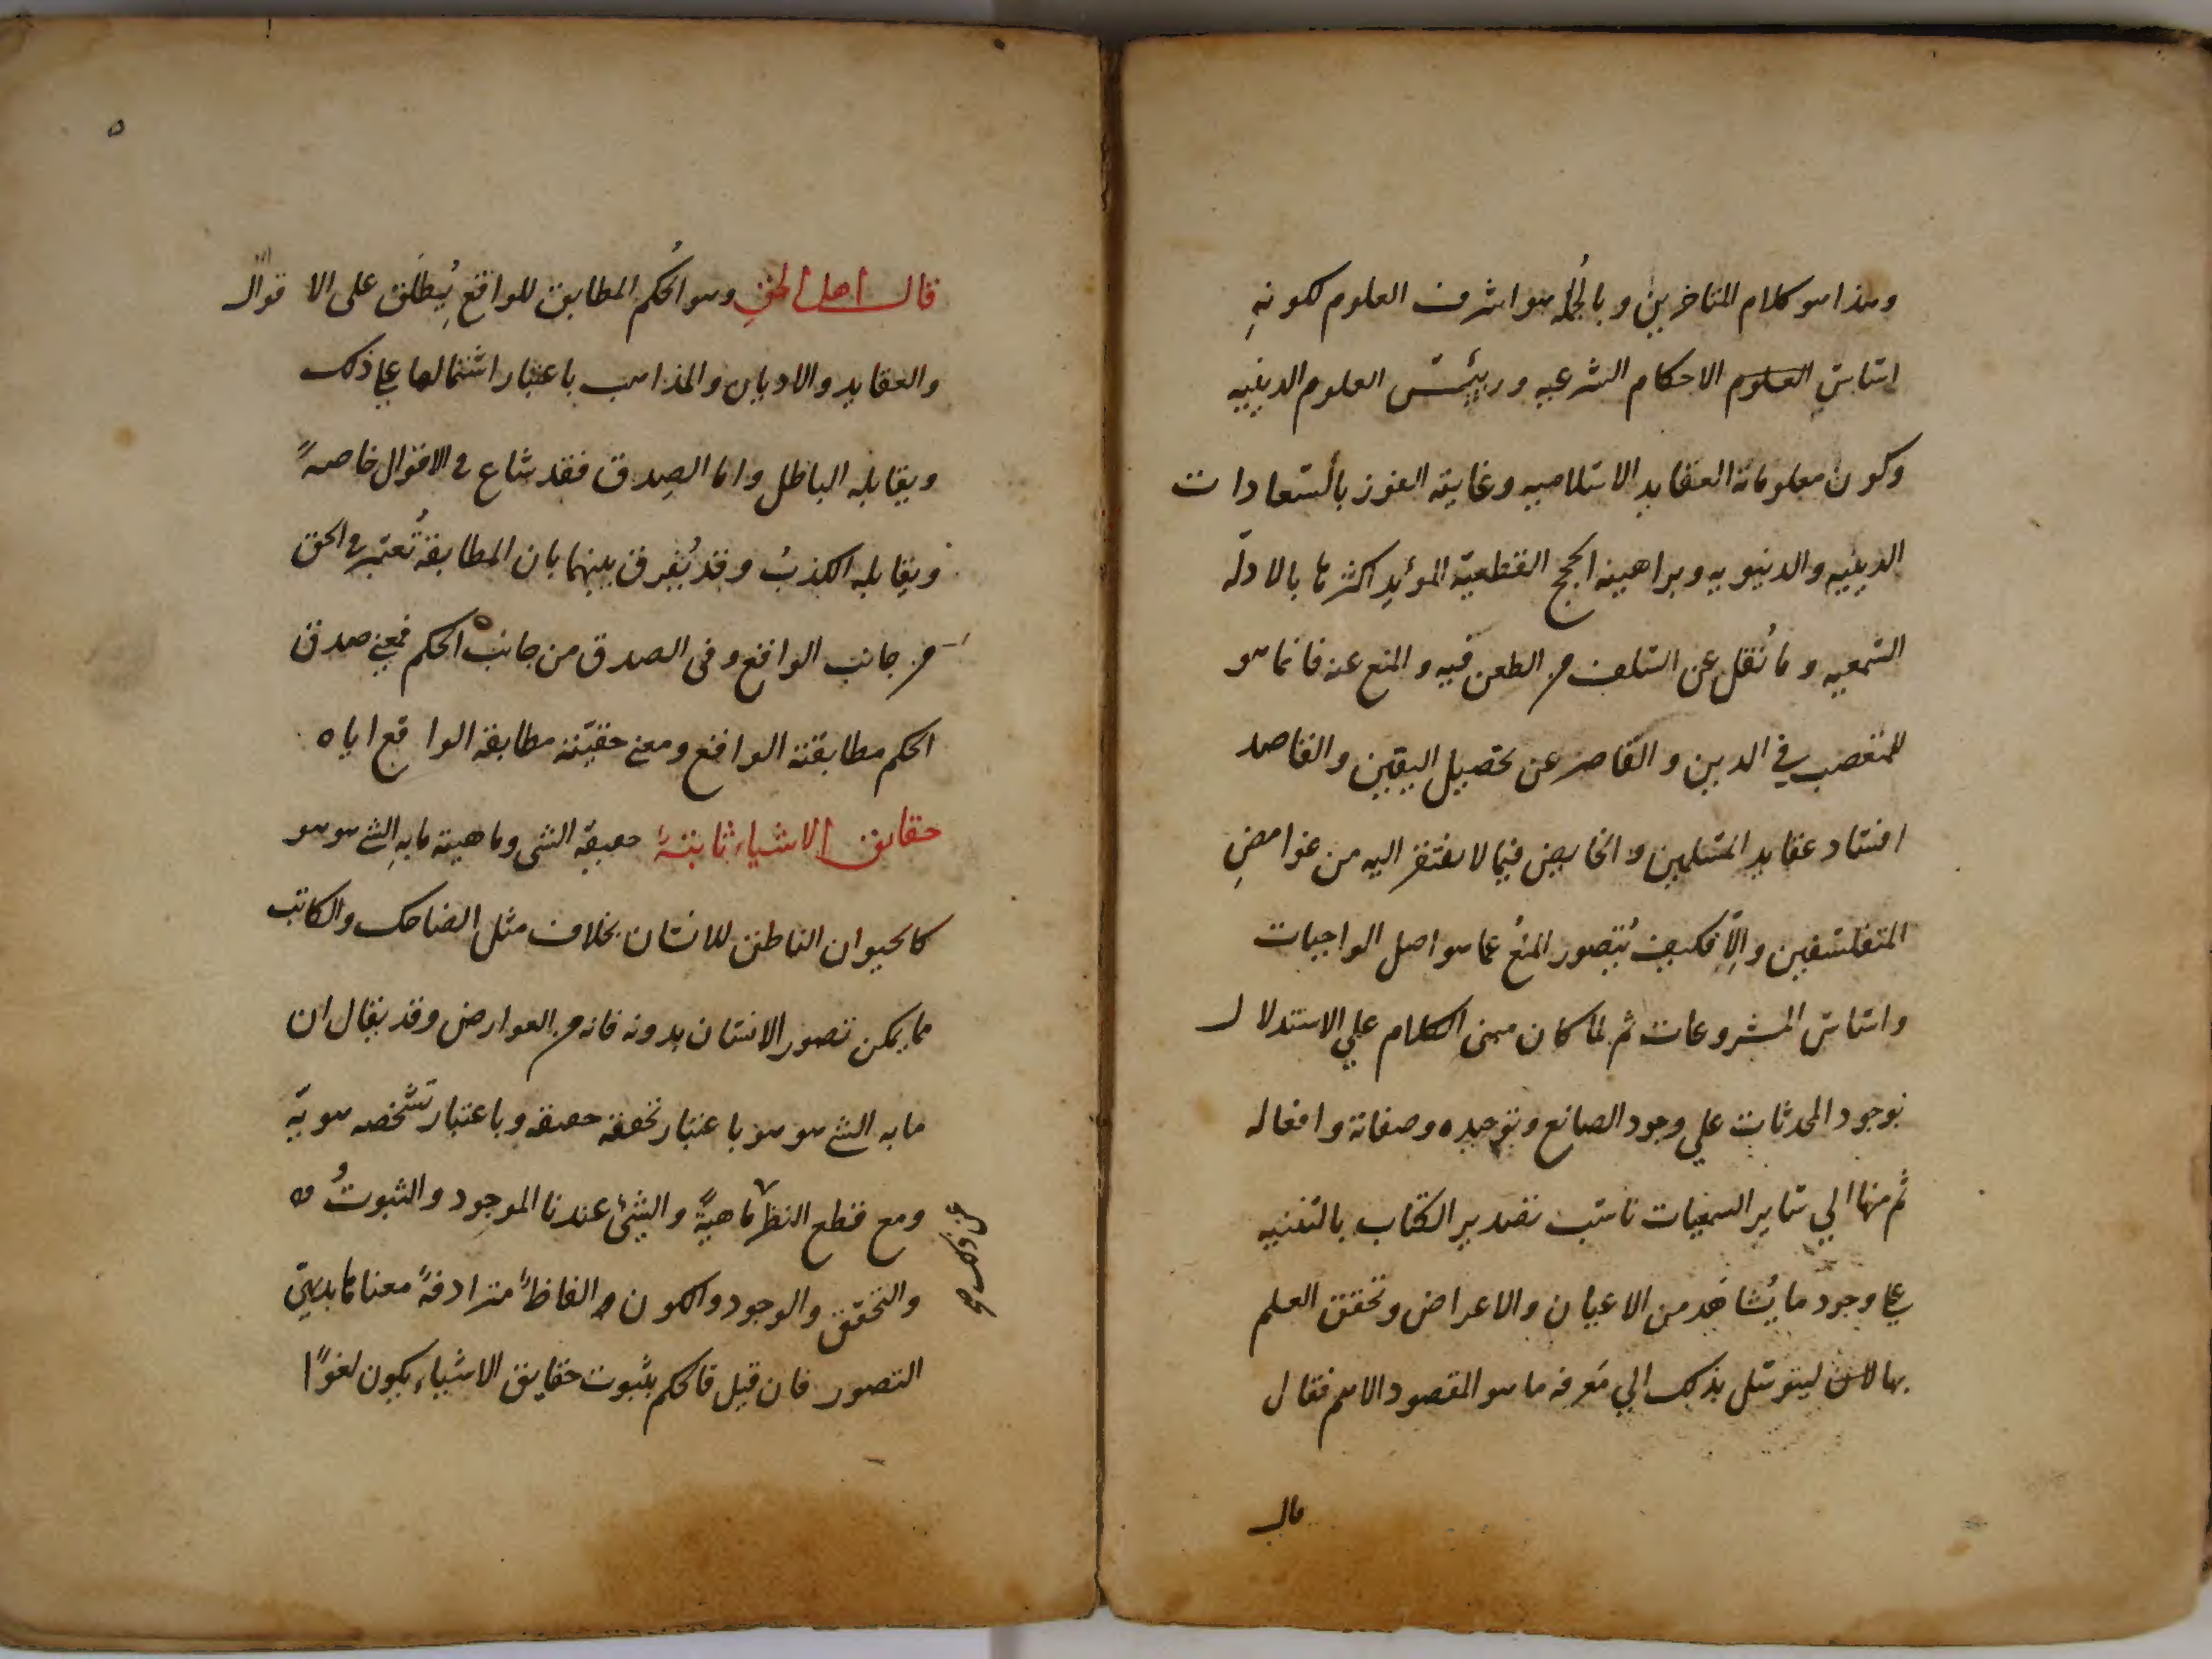 وهذا هو كلام المتاخرين وبالجملة هو اشرف العلوم لكونه
اساس العلوم الاحكام الشرعيه ورييس العلوم الدينيه
وكون معلوماته العقايد الاسلاميه وغايته الفوز بالسعادات
الدينيه والدنيويه وبراهينه الحجج القطعية المؤيد اكثرها بالادلّه
السّمعيه وما نُقل عن السّلف من الطعن فيه والمنع عنه فانما هو
للمتعصب في الدين والقاصر عن تحصيل اليقين والقاصد
افساد عقايد المسلمين والخايض فيما لا يفتقر اليه من غوامضِ
المتفلسفين والّا فكيف يُتصور المنعُ عما هو اصل الواجبات
واساس المشروعات ثم لما كان مبنى الكلام علي الاستدلال
بوجود المحدثات علي وجود الصانع وتوحيده وصفاته وافعاله
ثم منها الي ساير السمعيات ناسب تصدير الكتاب بالتنبيه
علي وجود ما يُشاهَد من الاعيان والاعراض وتحقق العلم
بها ليتوسّل بذلك الي مَعرفه ما هو المقصود الاهم فقال
قال
٥
قال اهل الحق وهو الحُكم المطابق للواقع يُطلَق على الاقوال
والعقايد والاديان والمذاهب باعتبار اشتمالها علي ذلك
ويقابله الباطل واما الصِدق فقد شاع في الاقوال خاصةً
ويقابله الكذبُ وقد يُفرق بينهما بان المطابقة تُعتبر في الحق
من جانب الواقع وفى الصدق من جانب الحكم فمعني صدق
الحكم مطابقته الواقع ومعني حقيّته مطابقة الواقع اياه
حقايق الاشياء ثابتةٌ حقيقة الشى وماهيته ما به الشي هو هو
كالحيوان الناطق للانسان بخلاف مثل الضاحك والكاتب
مما يمكن تصور الانسان بدونه فانه من العوارض وقد يقال ان
ما به الشي هو هو باعتبار تحققه حقيقة وباعتبار تشخّصه هويّة
ومع قطع النظر ماهيةً والشيئ عندنا الموجود والثبوتُ
عن ذلك صح
والتحقّق والوجود والكون الفاظٌ مترادفةٌ معناها بديهيّ
التصور فان قيل فالحكم بثبوت حقايق الاشياء يكون لغوًا